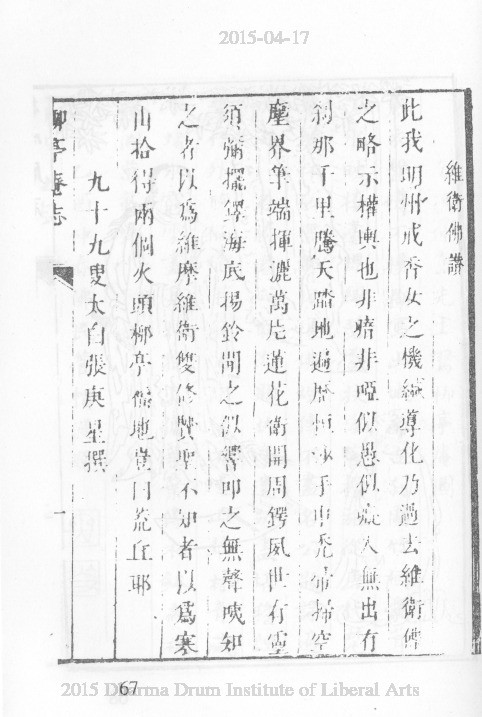 2015-04-17
維衛佛譜
此我明州戒香女之機緘導化乃過去維衛佛
之略示權輿也非暗非啞似愚似癡入無出有
剎那千里騰天踏地遍歷恒沙手中禿帚掃空
塵界筆端揮灑萬朶蓮花衛開周鍔風世存靈
須彌擺鐸海底揚鈴問之似響叩之無聲或知
之者以爲維摩維衛雙修賢聖不知者以爲寒
山拾得兩個火頭柳亭僻地豈曰荒丘耶
九十九叟太白張庚星撰
柳亭菴志
一
67
2015 Dharma Drum Institute of Liberal Arts